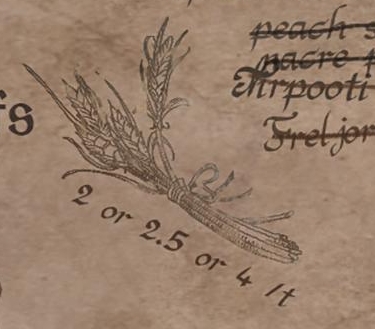 peach s
nacre
Thrpooti
Freljor
fs
2 or 2.5 or 4 lt